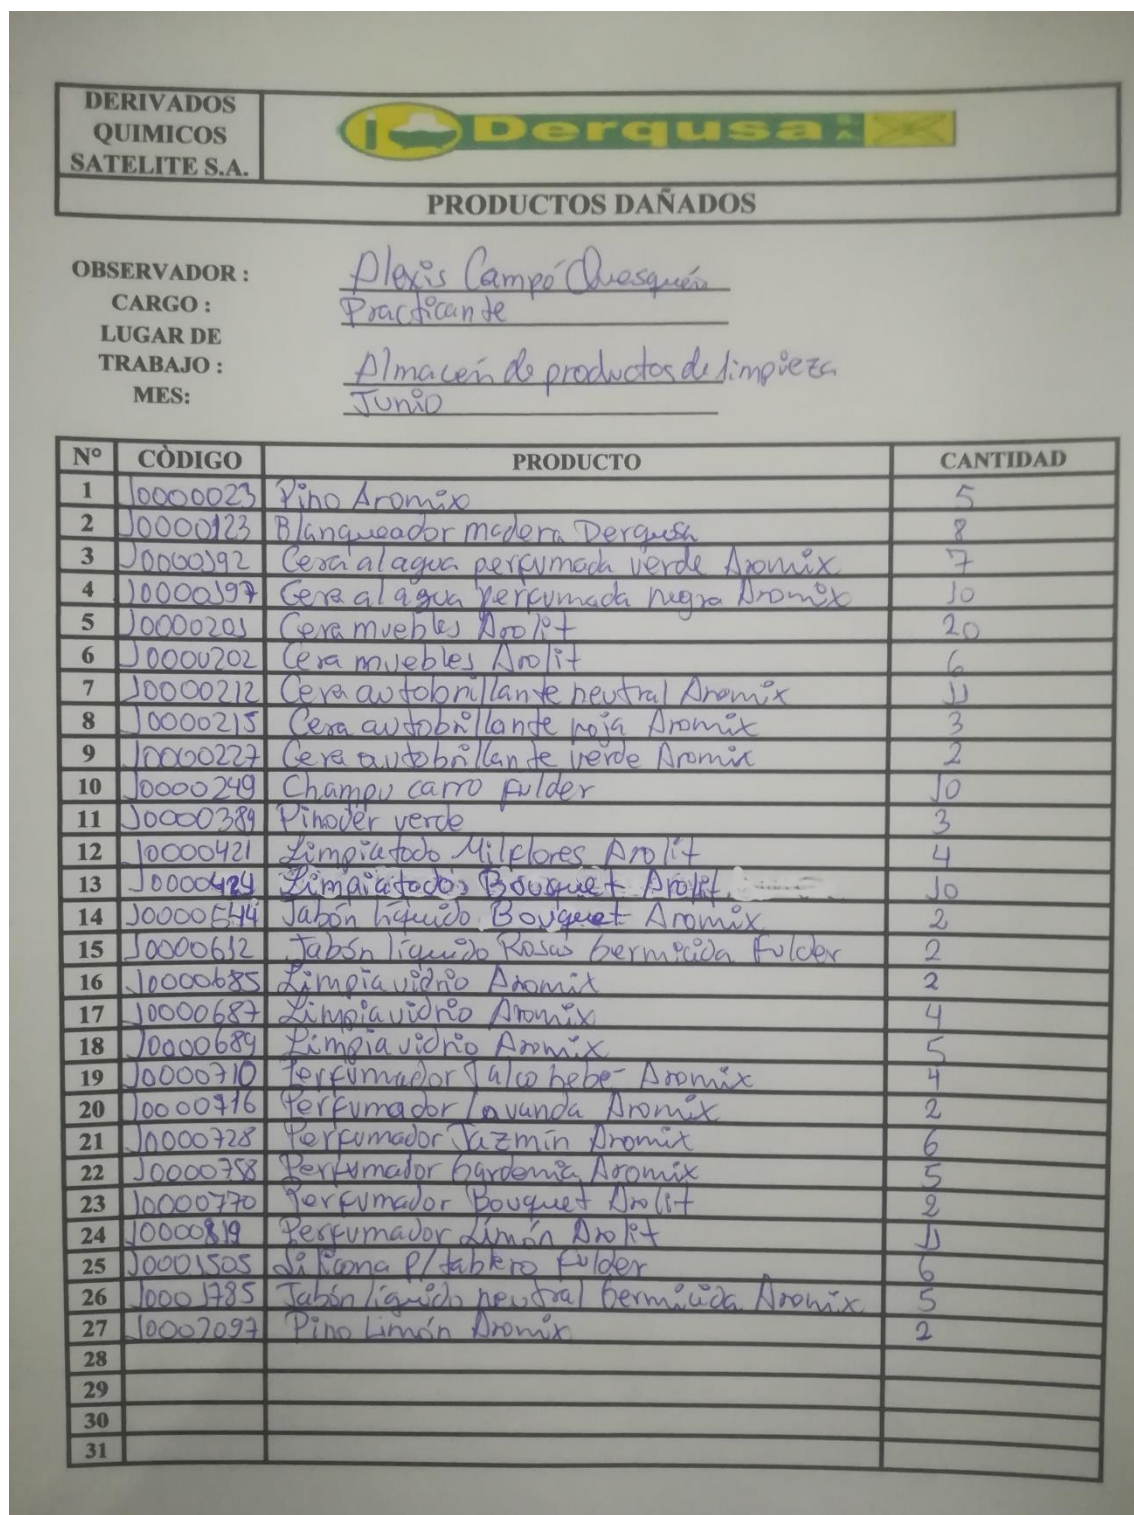 DERIVADOS
QUIMICOS
SATELITE S.A.
Derqusa S.A.
PRODUCTOS DAÑADOS
OBSERVADOR : Alexis Campó Quesquén
CARGO : Practicante
LUGAR DE
TRABAJO : Almacén de productos de limpieza
MES: Junio
N° CÒDIGO PRODUCTO CANTIDAD
1 10000023 Pino Aromix 5
2 10000123 Blanqueador madera Derqusa 8
3 10000192 Cera al agua perfumada verde Aromix 7
4 10000197 Cera al agua perfumada negra Aromix 10
5 10000201 Cera muebles Arolit 20
6 10000202 Cera muebles Arolit 6
7 10000212 Cera autobrillante neutral Aromix 11
8 10000215 Cera autobrillante roja Aromix 3
9 10000227 Cera autobrillante verde Aromix 2
10 10000249 Champu carro fulder 10
11 10000389 Pinover verde 3
12 10000421 Limpiatodo Milflores Arolit 4
13 10000424 Limpiatodos Bouquet Arolit 10
14 10000544 Jabón líquido Bouquet Aromix 2
15 10000612 Jabón líquido Rosas Germicida Fulder 2
16 10000685 Limpiavidrio Aromix 2
17 10000687 Limpiavidrio Aromix 4
18 10000689 Limpiavidrio Aromix 5
19 10000710 Perfumador Talco bebe Aromix 4
20 10000716 Perfumador lavanda Aromix 2
21 10000728 Perfumador Jazmín Aromix 6
22 10000758 Perfumador Gardenia Aromix 5
23 10000770 Perfumador Bouquet Arolit 2
24 10000819 Perfumador Limón Arolit 11
25 10001505 Silicona P/tablero Fulder 6
26 10001785 Jabón líquido neutral Germicida Aromix 5
27 10002097 Pino Limón Aromix 2
28
29
30
31